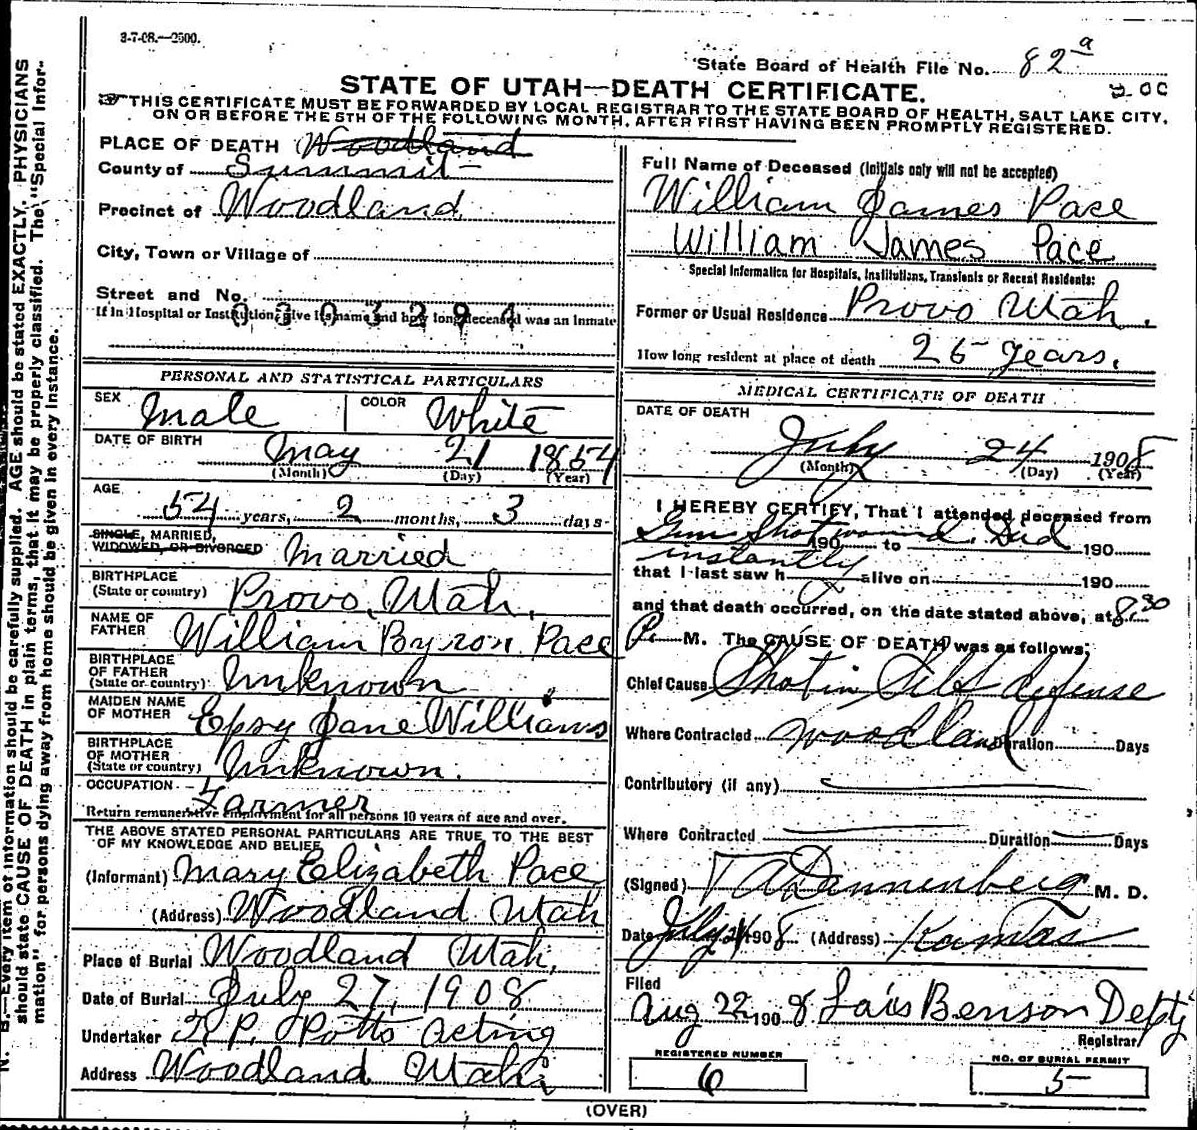 3-7-08.—2500.
State Board of Health File No. 82 a
STATE OF UTAH—DEATH CERTIFICATE.
THIS CERTIFICATE MUST BE FORWARDED BY LOCAL REGISTRAR TO THE STATE BOARD OF HEALTH, SALT LAKE CITY,
ON OR BEFORE THE 5TH OF THE FOLLOWING MONTH, AFTER FIRST HAVING BEEN PROMPTLY REGISTERED.
PLACE OF DEATH Woodland
County of Summit
Precinct of Woodland
City, Town or Village of
Street and No.
0303294
If in Hospital or Institution, give its name and how long deceased was an Inmate
PERSONAL AND STATISTICAL PARTICULARS
SEX Male COLOR White
DATE OF BIRTH May 21 1854
(Month) (Day) (Year)
AGE
54 years, 2 months, 3 days
SINGLE, MARRIED,
WIDOWED, OR DIVORCED Married
BIRTHPLACE
(State or country) Provo, Utah,
NAME OF
FATHER William Byron Pace
BIRTHPLACE
OF FATHER
(State or country) Unknown
MAIDEN NAME
OF MOTHER Epsy Jane Williams
BIRTHPLACE
OF MOTHER
(State or country) Unknown.
OCCUPATION Farmer
Return remunerative employment for all persons 10 years of age and over.
THE ABOVE STATED PERSONAL PARTICULARS ARE TRUE TO THE BEST
OF MY KNOWLEDGE AND BELIEF
(Informant) Mary Elizabeth Pace
(Address) Woodland Utah
Place of Burial Woodland Utah,
Date of Burial July 27, 1908
Undertaker P. Potts Acting
Address Woodland Utah
Full Name of Deceased (Initials only will not be accepted)
William James Pace
William James Pace
Special Information for Hospitals, Institutions, Transients or Recent Residents:
Former or Usual Residence Provo Utah.
How long resident at place of death 25 years.
MEDICAL CERTIFICATE OF DEATH
DATE OF DEATH
July 24 1908
(Month) (Day) (Year)
I HEREBY CERTIFY, That I attended deceased from
Gun Shot wound. Died
190 to 190
instantly
that I last saw h alive on 190
and that death occurred, on the date stated above, at 8.30
P. M. The CAUSE OF DEATH was as follows:
Chief Cause Shot in Self defense
Where Contracted Woodland Duration Days
Contributory (if any)
Where Contracted Duration Days
(Signed) Dannenberg M. D.
Date July 1908 (Address) Kamas
Filed
Aug 22 1908 Lais Benson Depty
Registrar
REGISTERED NUMBER
6
NO. OF BURIAL PERMIT
5
(OVER)
N. B.—Every item of information should be carefully supplied. AGE should be stated EXACTLY. PHYSICIANS
should state CAUSE OF DEATH in plain terms, that it may be properly classified. The "Special Infor-
mation" for persons dying away from home should be given in every instance.